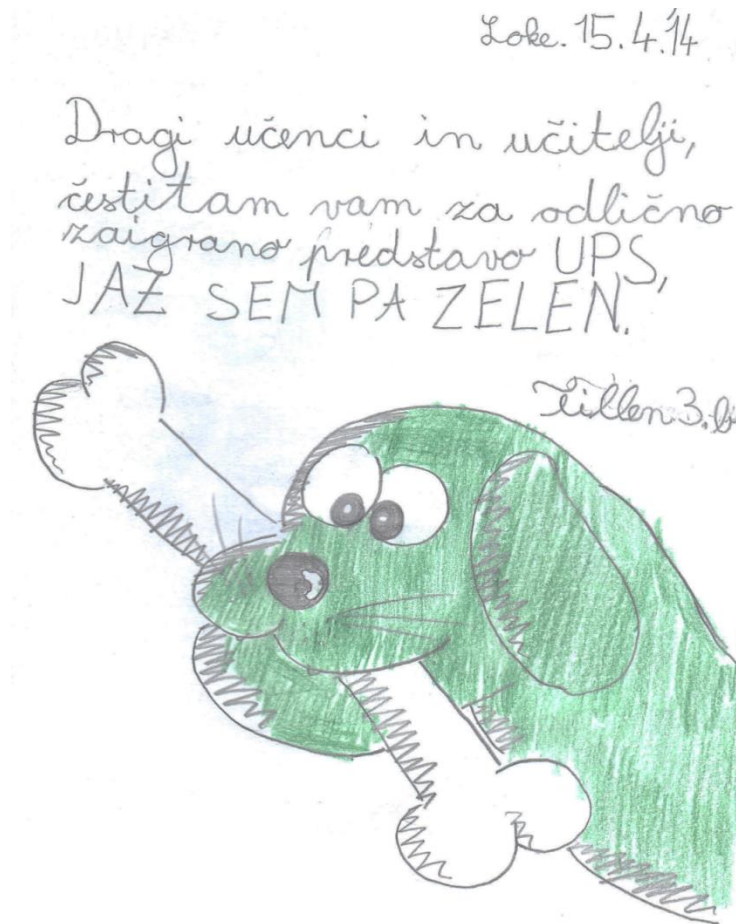 Loke. 15.4.14
Dragi učenci in učitelji,
čestitam vam za odlično
zaigrano predstavo UPS,
JAZ SEM PA ZELEN.
Tillen 3.b